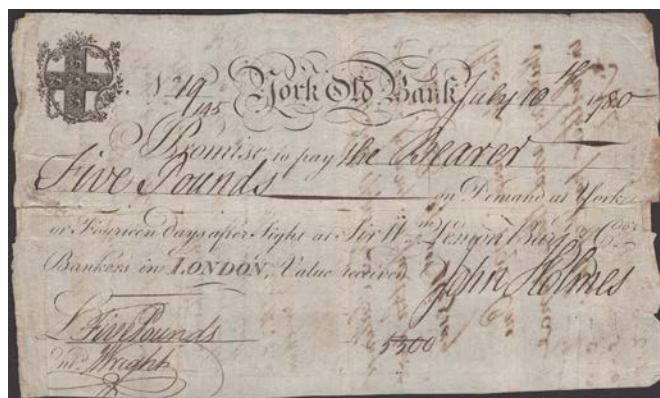 No. 19/195 York Old Bank July 10th 1780
I Promise to pay the Bearer
Five Pounds on Demand at York
or Fourteen days after Sight at Sir Wm. Lemon Bart. & Co.
Bankers in LONDON, Value received
John Holmes
£ Five Pounds
Wright
5300